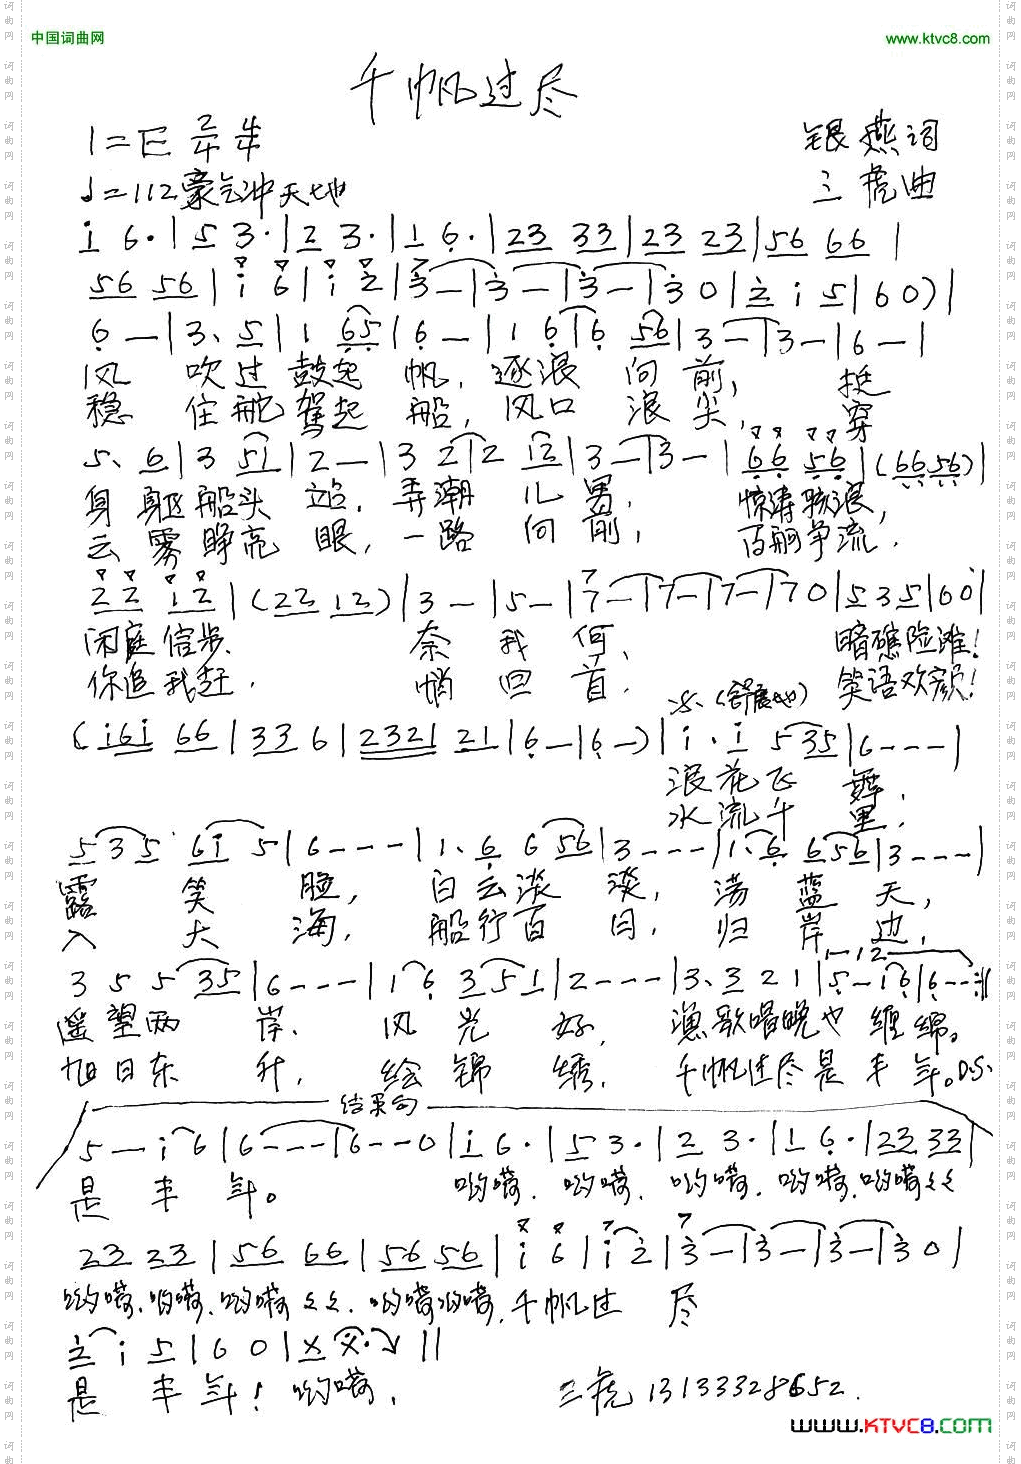 中国词曲网
www.ktvc8.com
千帆过尽
1=E 2/4 4/4
银燕词
♩=112豪气冲天地
三虎曲
i 6· | 5 3· | 2 3· | 1 6· | 23 33 | 23 23 | 56 66 |
56 56 | i 6 | i 2 | 3 — | 3 — | 3 — | 3 0 | 2 i 5 | 6 0) |
6 — | 3、5 | 1 65 | 6 — | 1 6 | 6 56 | 3 — | 3 — | 6 — |
风 吹过鼓起 帆，逐浪 向前， 挺
稳 住舵驾起 船，风口 浪尖， 穿
5、6 | 3 51 | 2 — | 3 2 | 2 12 | 3 — | 3 — | 66 56 | (66 56) |
身躯船头 立，弄潮 儿男， 惊涛骇浪，
云雾睁亮 眼，一路 向前， 百舸争流，
22 12 | (22 12) | 3 — | 5 — | 7 — | 7 — | 7 — | 7 0 | 5 3 5 | 6 0 |
闲庭信步， 奈 我 何， 暗礁险滩！
你追我赶， 悄 回 首， 笑语欢颜！
(i6i 66 | 33 6 | 2321 21 | 6 — | 6 —) | i、i 5 35 | 6 - - - |
浪花飞 舞，
水流千 里，
5 3 5 6i 5 | 6 - - - | 1、6 6 56 | 3 - - - | 1、6 656 | 3 - - - |
露 笑 脸， 白云淡 淡， 荡 蓝 天，
入 大 海， 船行百 日， 归 岸 边，
1—12
3 5 5 35 | 6 - - - | 1 6 3 5 1 | 2 - - - | 3、3 2 1 | 5 — 1 6 | 6 - - :||
遥望两 岸， 风 光 好， 渔歌唱晚也 缠 绵。
旭日东 升， 绘 锦 绣， 千帆过尽是 丰 年。D.S.
结束句
5 — i 6 | 6 - - - | 6 - - 0 | i 6· | 5 3· | 2 3· | 1 6· | 22 33 |
是 丰 年。 哟嗬，哟嗬，哟嗬，哟嗬，哟嗬
22 22 | 56 66 | 56 56 | i 6 | i 2 | 3 — | 3 — | 3 — | 3 0 |
哟嗬，哟嗬，哟嗬 哟嗬哟嗬，千帆过 尽
2 i 5 | 6 0 | X X· ||
是 丰 年！ 哟嗬，
三虎 13133328652.
www.KTVC8.com